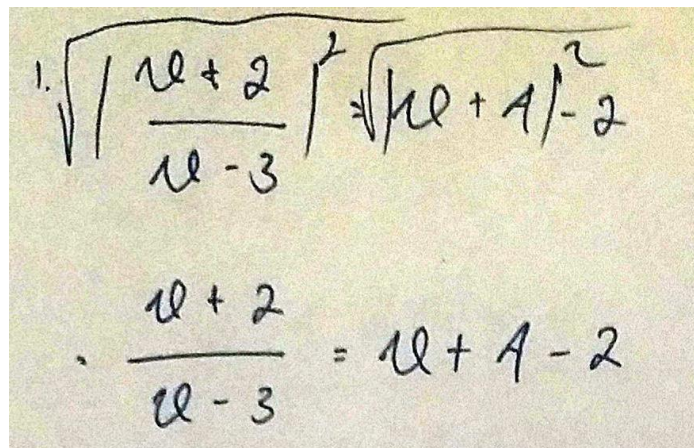 1. √|(x + 2)/(x - 3)|² = √|x + 4|² - 2
· (x + 2)/(x - 3) = x + 4 - 2